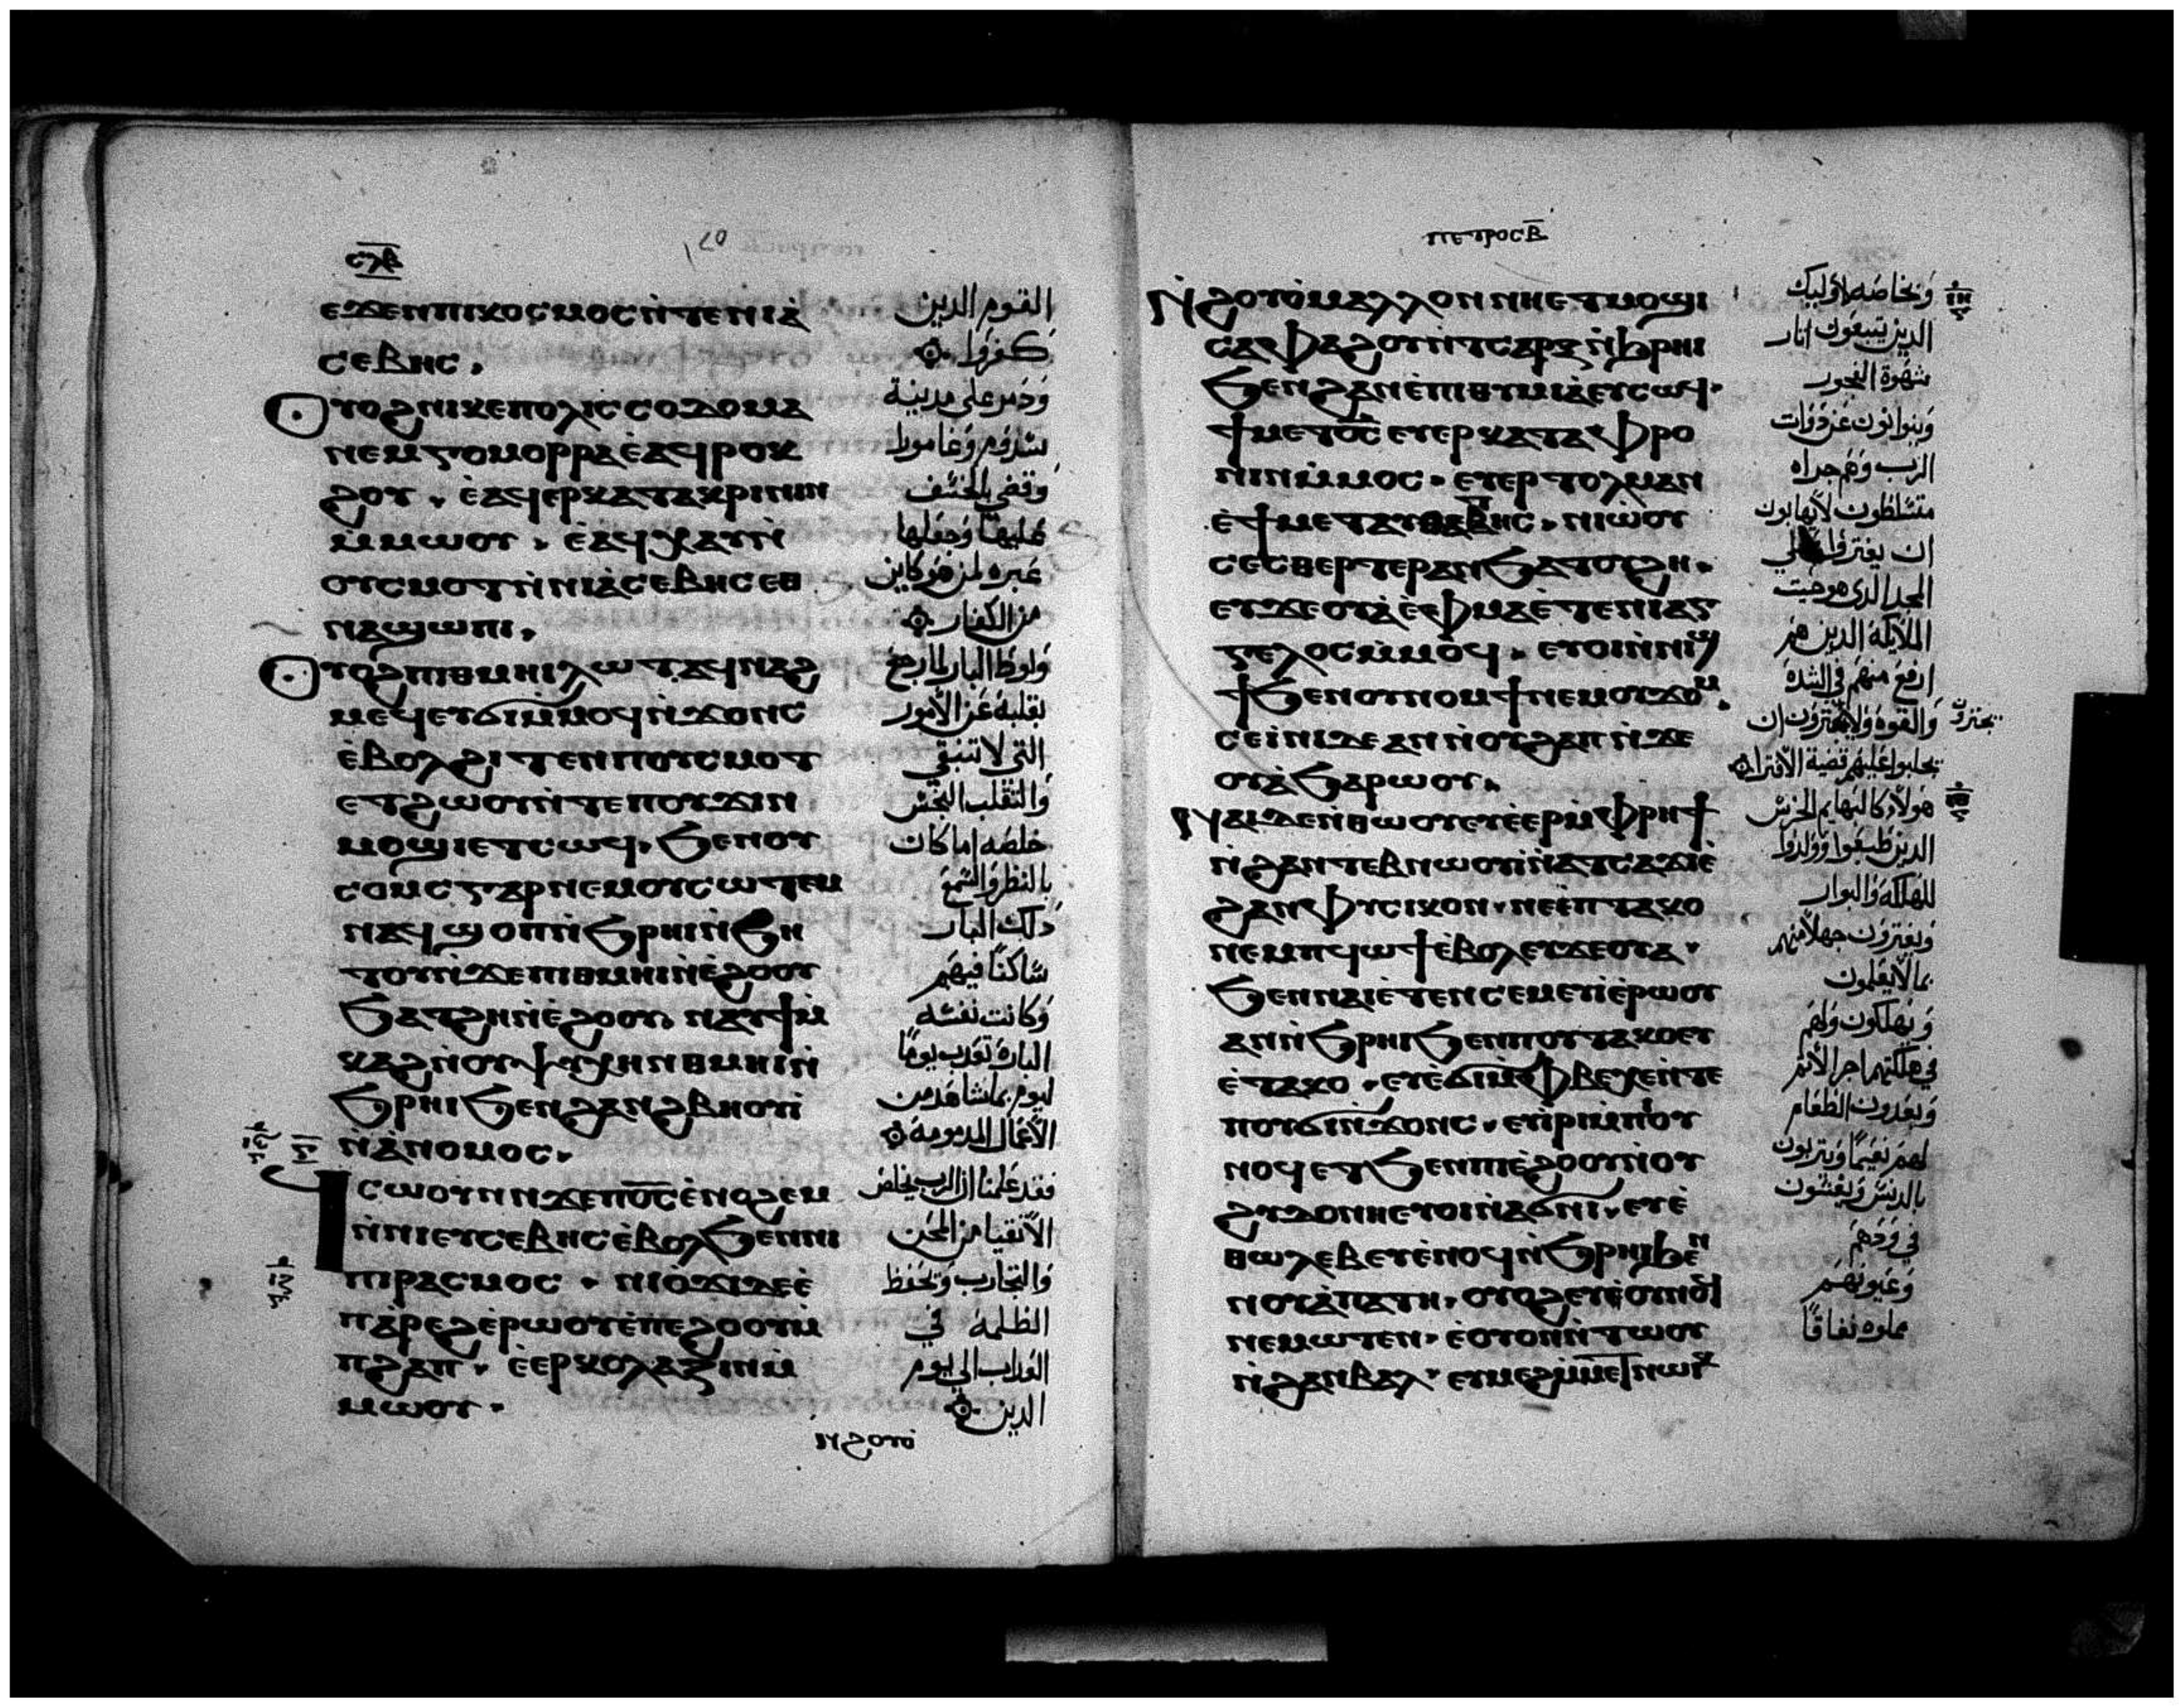 ⲥⲗⲃ
ⲉϫⲉⲛⲡⲓⲕⲟⲥⲙⲟⲥⲛ̀ⲧⲉⲛⲓⲁ̀
ⲥⲉⲃⲏⲥ.
ⲟⲩⲟϩⲛⲓⲕⲉⲡⲟⲗⲓⲥⲥⲟⲇⲟⲙⲁ
ⲛⲉⲙⲅⲟⲙⲟⲣⲣⲁⲉ̀ⲁϥⲣⲟⲕ
ϩⲟⲩ. ⲉ̀ⲁϥⲉⲣⲕⲁⲧⲁⲕⲣⲓⲛⲓⲛ
ⲙⲙⲱⲟⲩ. ⲉ̀ⲁϥⲭⲁⲩⲛ̀
ⲟⲩⲥⲙⲟⲧⲛ̀ⲛⲓⲁ̀ⲥⲉⲃⲏⲥⲉⲑ
ⲛⲁϣⲱⲡⲓ.
ⲟⲩⲟϩⲡⲓⲑⲙⲏⲓⲗⲱⲧⲁϥⲛⲁϩ
ⲙⲉϥⲉⲩϭⲓⲙ̀ⲙⲟϥⲛ̀ϫⲟⲛⲥ
ⲉ̀ⲃⲟⲗϩⲓⲧⲉⲛⲡⲟⲩⲥⲙⲟⲧ
ⲉⲧϩⲱⲟⲩⲛ̀ⲧⲉⲡⲟⲩϫⲓⲛ
ⲙⲟϣⲓⲉⲧⲥⲱϥ. ϧⲉⲛⲟⲩ
ⲥⲟⲙⲥⲅⲁⲣⲛⲉⲙⲟⲩⲥⲱⲧⲉⲙ
ⲛⲁϥϣⲟⲡⲛ̀ϧⲣⲏⲓⲛ̀ϧⲏ
ⲧⲟⲩⲛ̀ϫⲉⲡⲓⲑⲙⲏⲓⲛ̀ⲉ̀ϩⲟⲟⲩ
ϧⲁⲧϩⲏⲛ̀ⲉ̀ϩⲟⲟⲩ. ⲛⲁⲩϯⲙ̀
ⲕⲁϩⲛ̀ⲟⲩⲯⲩⲭⲏⲛⲑⲙⲏⲓⲛ̀
ϧⲣⲏⲓϧⲉⲛϩⲁⲛϩⲃⲏⲟⲩⲓ̀
ⲛ̀ⲁ̀ⲛⲟⲙⲟⲥ.
ϥⲥⲱⲟⲩⲛⲛϫⲉⲡⲟ̅ⲥ̅ⲉ̀ⲛⲟϩⲉⲙ
ⲛ̀ⲛⲓⲉⲩⲥⲉⲃⲏⲥⲉ̀ⲃⲟⲗϧⲉⲛⲛⲓ
ⲡⲓⲣⲁⲥⲙⲟⲥ. ⲛⲓⲟ̀ϫⲓⲇⲉⲉ̀
ⲡⲁ̀ⲣⲉϩⲉ̀ⲣⲱⲟⲩⲉ̀ⲡⲉϩⲟⲟⲩⲙ̀
ⲡϩⲁⲡ. ⲉ̀ⲉⲣⲕⲟⲗⲁⲍⲓⲛⲙ̀
ⲙⲱⲟⲩ.
ⲛϩⲟⲩⲟ̀
القوم الدين
كفروا
ودمر على مدينة
سدوم وغامورا
وقضى بالخسف
عليها وجعلها
عبره لمن هو كاين
من الكفار
ولوط البار لما رجع
بقلبه عن الأمور
التى لا تنبغى
والتقلب النجس
خلصه اما كان
بالنظر والسمع
دلك البار
ساكنًا فيهم
وكانت نفسه
البارة تعدب يومًا
ليوم بما شاهد من
الأعمال المدمومة
فقد علمنا ان الرب يخلص
الأتقيا من المحن
والتجارب وتحفظ
الظلمة فى
العداب الى يوم
الدين
ⲡⲉⲧⲣⲟⲥⲃ̅
ⲛ̀ϩⲟⲩⲟ̀ⲙⲁⲗⲗⲟⲛⲛⲏⲉⲧⲙⲟϣⲓ
ⲥⲁⲫⲁϩⲟⲩⲛ̀ⲧⲥⲁⲣⲝⲛ̀ϧⲣⲏⲓ
ϧⲉⲛϩⲁⲛⲉ̀ⲡⲓⲑⲩⲙⲓⲁ̀ⲉⲩⲥⲱϥ.
ϯⲙⲉⲧⲟ̅ⲥ̅ⲉⲩⲉⲣⲕⲁⲧⲁⲫⲣⲟ
ⲛⲓⲛⲙ̀ⲙⲟⲥ. ⲉⲩⲉⲣⲧⲟⲗⲙⲁⲛ
ⲉ̀ϯⲙⲉⲧⲁⲩⲑⲁⲇⲏⲥ. ⲛⲓⲱ̀ⲟⲩ
ⲥⲉⲥⲑⲉⲣⲧⲉⲣⲁⲛϧⲁⲧⲟⲩϩⲏ.
ⲉⲩϫⲉⲟⲩⲁ̀ⲉ̀ⲫⲙⲁⲉ̀ⲧⲉⲛⲓⲁⲅ
ⲅⲉⲗⲟⲥⲙ̀ⲙⲟϥ. ⲉⲩⲟⲓⲛ̀ⲛⲓϣ
ϯϧⲉⲛⲟⲩⲛⲟⲙϯⲛⲉⲙⲟⲩϫⲟⲙ.
ⲥⲉⲓ̀ⲛⲓⲇⲉⲁⲛⲛ̀ⲟⲩϩⲁⲡⲛ̀ϫⲉ
ⲟⲩⲁ̀ϧⲁⲣⲱⲟⲩ.
ⲛⲁⲓⲇⲉⲛ̀ⲑⲱⲟⲩⲉⲧⲉ̀ⲉⲣⲙ̀ⲫⲣⲏϯ
ⲛ̀ϩⲁⲛⲧⲉⲃⲛⲱⲟⲩⲓ̀ⲛ̀ⲁⲧⲥⲁϫⲓⲉ̀
ϩⲁⲛⲫⲩⲥⲓⲕⲟⲛ.ⲛⲉⲉ̀ⲡⲧⲁⲕⲟ
ⲛⲉⲙⲡⲥⲱϯⲉ̀ⲃⲟⲗⲉⲩϫⲉⲟⲩⲁ.
ϧⲉⲛⲛⲁⲓⲉ̀ⲧⲉⲛⲥⲉⲙⲉⲩⲓⲉ̀ⲣⲱⲟⲩ
ⲁⲛⲛ̀ϧⲣⲏⲓϧⲉⲛⲡⲟⲩⲧⲁⲕⲟⲉⲩ
ⲉ̀ⲧⲁⲕⲟ. ⲉⲩⲉ̀ϭⲓⲙ̀ⲫⲃⲉⲭⲉⲛ̀ⲧⲉ
ⲡⲟⲩϭⲓⲛ̀ϫⲟⲛⲥ. ⲉⲩⲓ̀ⲣⲓⲙ̀ⲡⲟⲩ
ⲛⲟϥⲉⲧϧⲉⲛⲡⲓⲉ̀ϩⲟⲟⲩⲛ̀ⲟⲩ
ϩⲩⲇⲟⲛⲏⲉⲩⲟⲓⲛ̀ⲁϭⲛⲓ. ⲉⲧⲉ̀
ⲑⲱⲗⲉⲃⲉⲩⲉ̀ⲛⲟϥⲛ̀ϧⲣⲏⲓϧⲉⲛ
ⲛⲟⲩⲁ̀ⲡⲁⲧⲏ.
ⲛⲉⲙⲱⲧⲉⲛ. ⲉ̀ⲟⲩⲟⲛⲛ̀ⲧⲱⲟⲩ
ⲛ̀ϩⲁⲛⲃⲁⲗ. ⲉⲩⲙⲉϩⲙ̀ⲙⲉⲧⲛⲱⲓⲕ
وبخاصه لاوليك
الدين يتبعون اثار
شهوة الفجور
ويتوانون عن دوات
الرب وهم جراه
متسلطون لا يهابون
ان يفتروا على
المجد الدى هو حيث
الملايكة الدين هم
ارفع منهم فى الشدة
والقوه ولا يجترون ان
يجترون
يجلبوا عليهم قضية الافترا
هولاء كالبهايم الخرس
الدين طبعوا وولدوا
للهلكه والبوار
ويفترون جهلا منهم
بما لا يعلمون
ويهلكون ولهم
فى هلكتهم اجر الاثم
ويعدون الطعام
لهم نعيمًا ويتربون
بالدنس ويغشون
فى ودهم
وعيونهم
مملوه نفاقًا